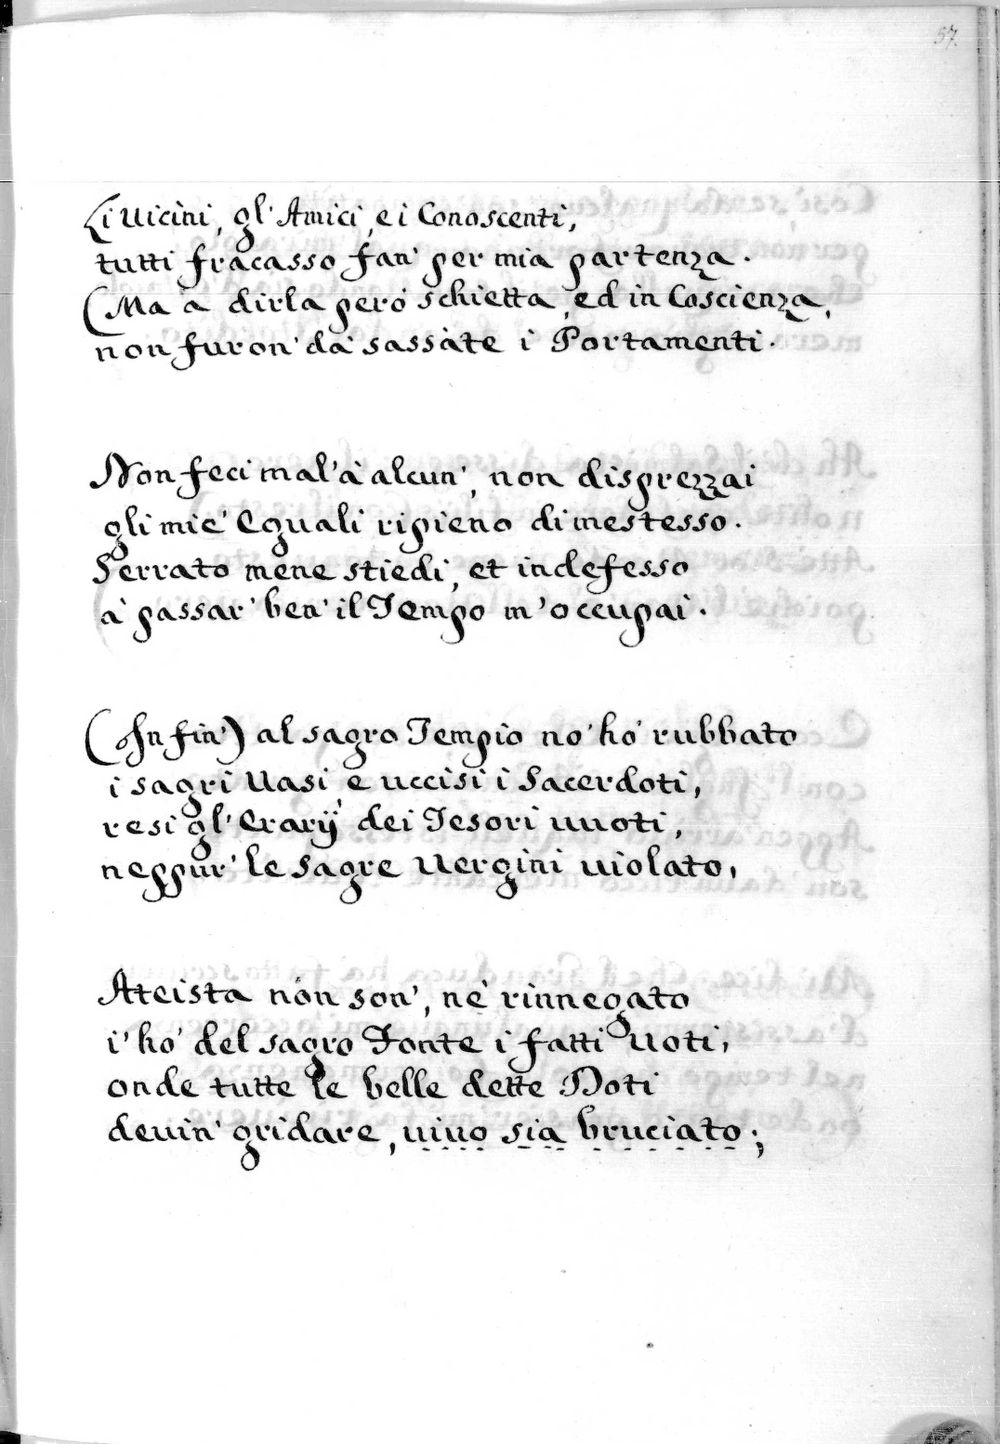 57.
Li Uicini, gl' Amici, e i Conoscenti,
tutti fracasso fan' per mia partenza.
(Ma a dirla però schietta, ed in Coscienza,
non furon' dà sassate i Portamenti.
Non feci mal' à alcun', non disprezzai
gli mie' Equali ripieno di me stesso.
Serrato mene stiedi, et indefesso
à passar' ben' il Tempo m'occupai.
(In fin') al sagro Tempio no' hó rubbato
i sagri Uasi, e uccisi i Sacerdoti,
resi gl' Erarÿ dei Tesori uuoti,
neppur' le sagre Uergini uiolato,
Ateista nòn son', nè rinnegato
i' hó del sagro Fonte i fatti Uoti,
onde tutte le belle dette Doti
deuin' gridare, uiuo sia bruciato;